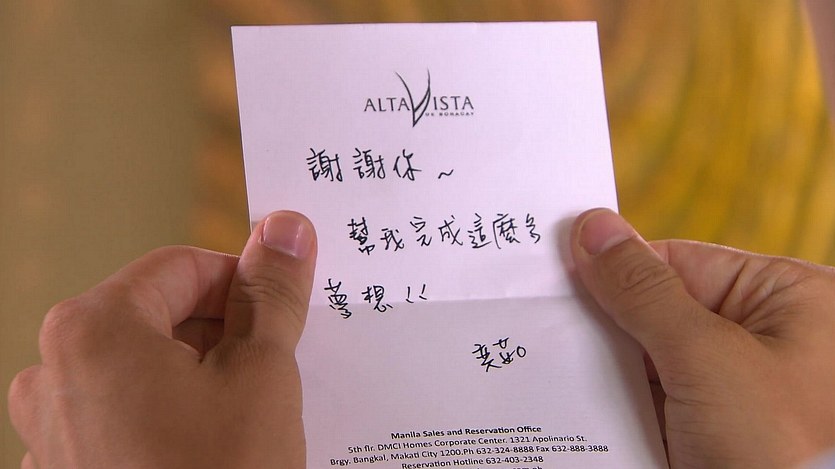 ALTA VISTA
DE BORACAY
謝謝你～
幫我完成這麼多
夢想!!
奕茹
Manila Sales and Reservation Office
5th flr. DMCI Homes Corporate Center. 1321 Apolinario St.
Brgy, Bangkal, Makati City 1200.Ph 632-324-8888 Fax 632-888-3888
Reservation Hotline 632-403-2348